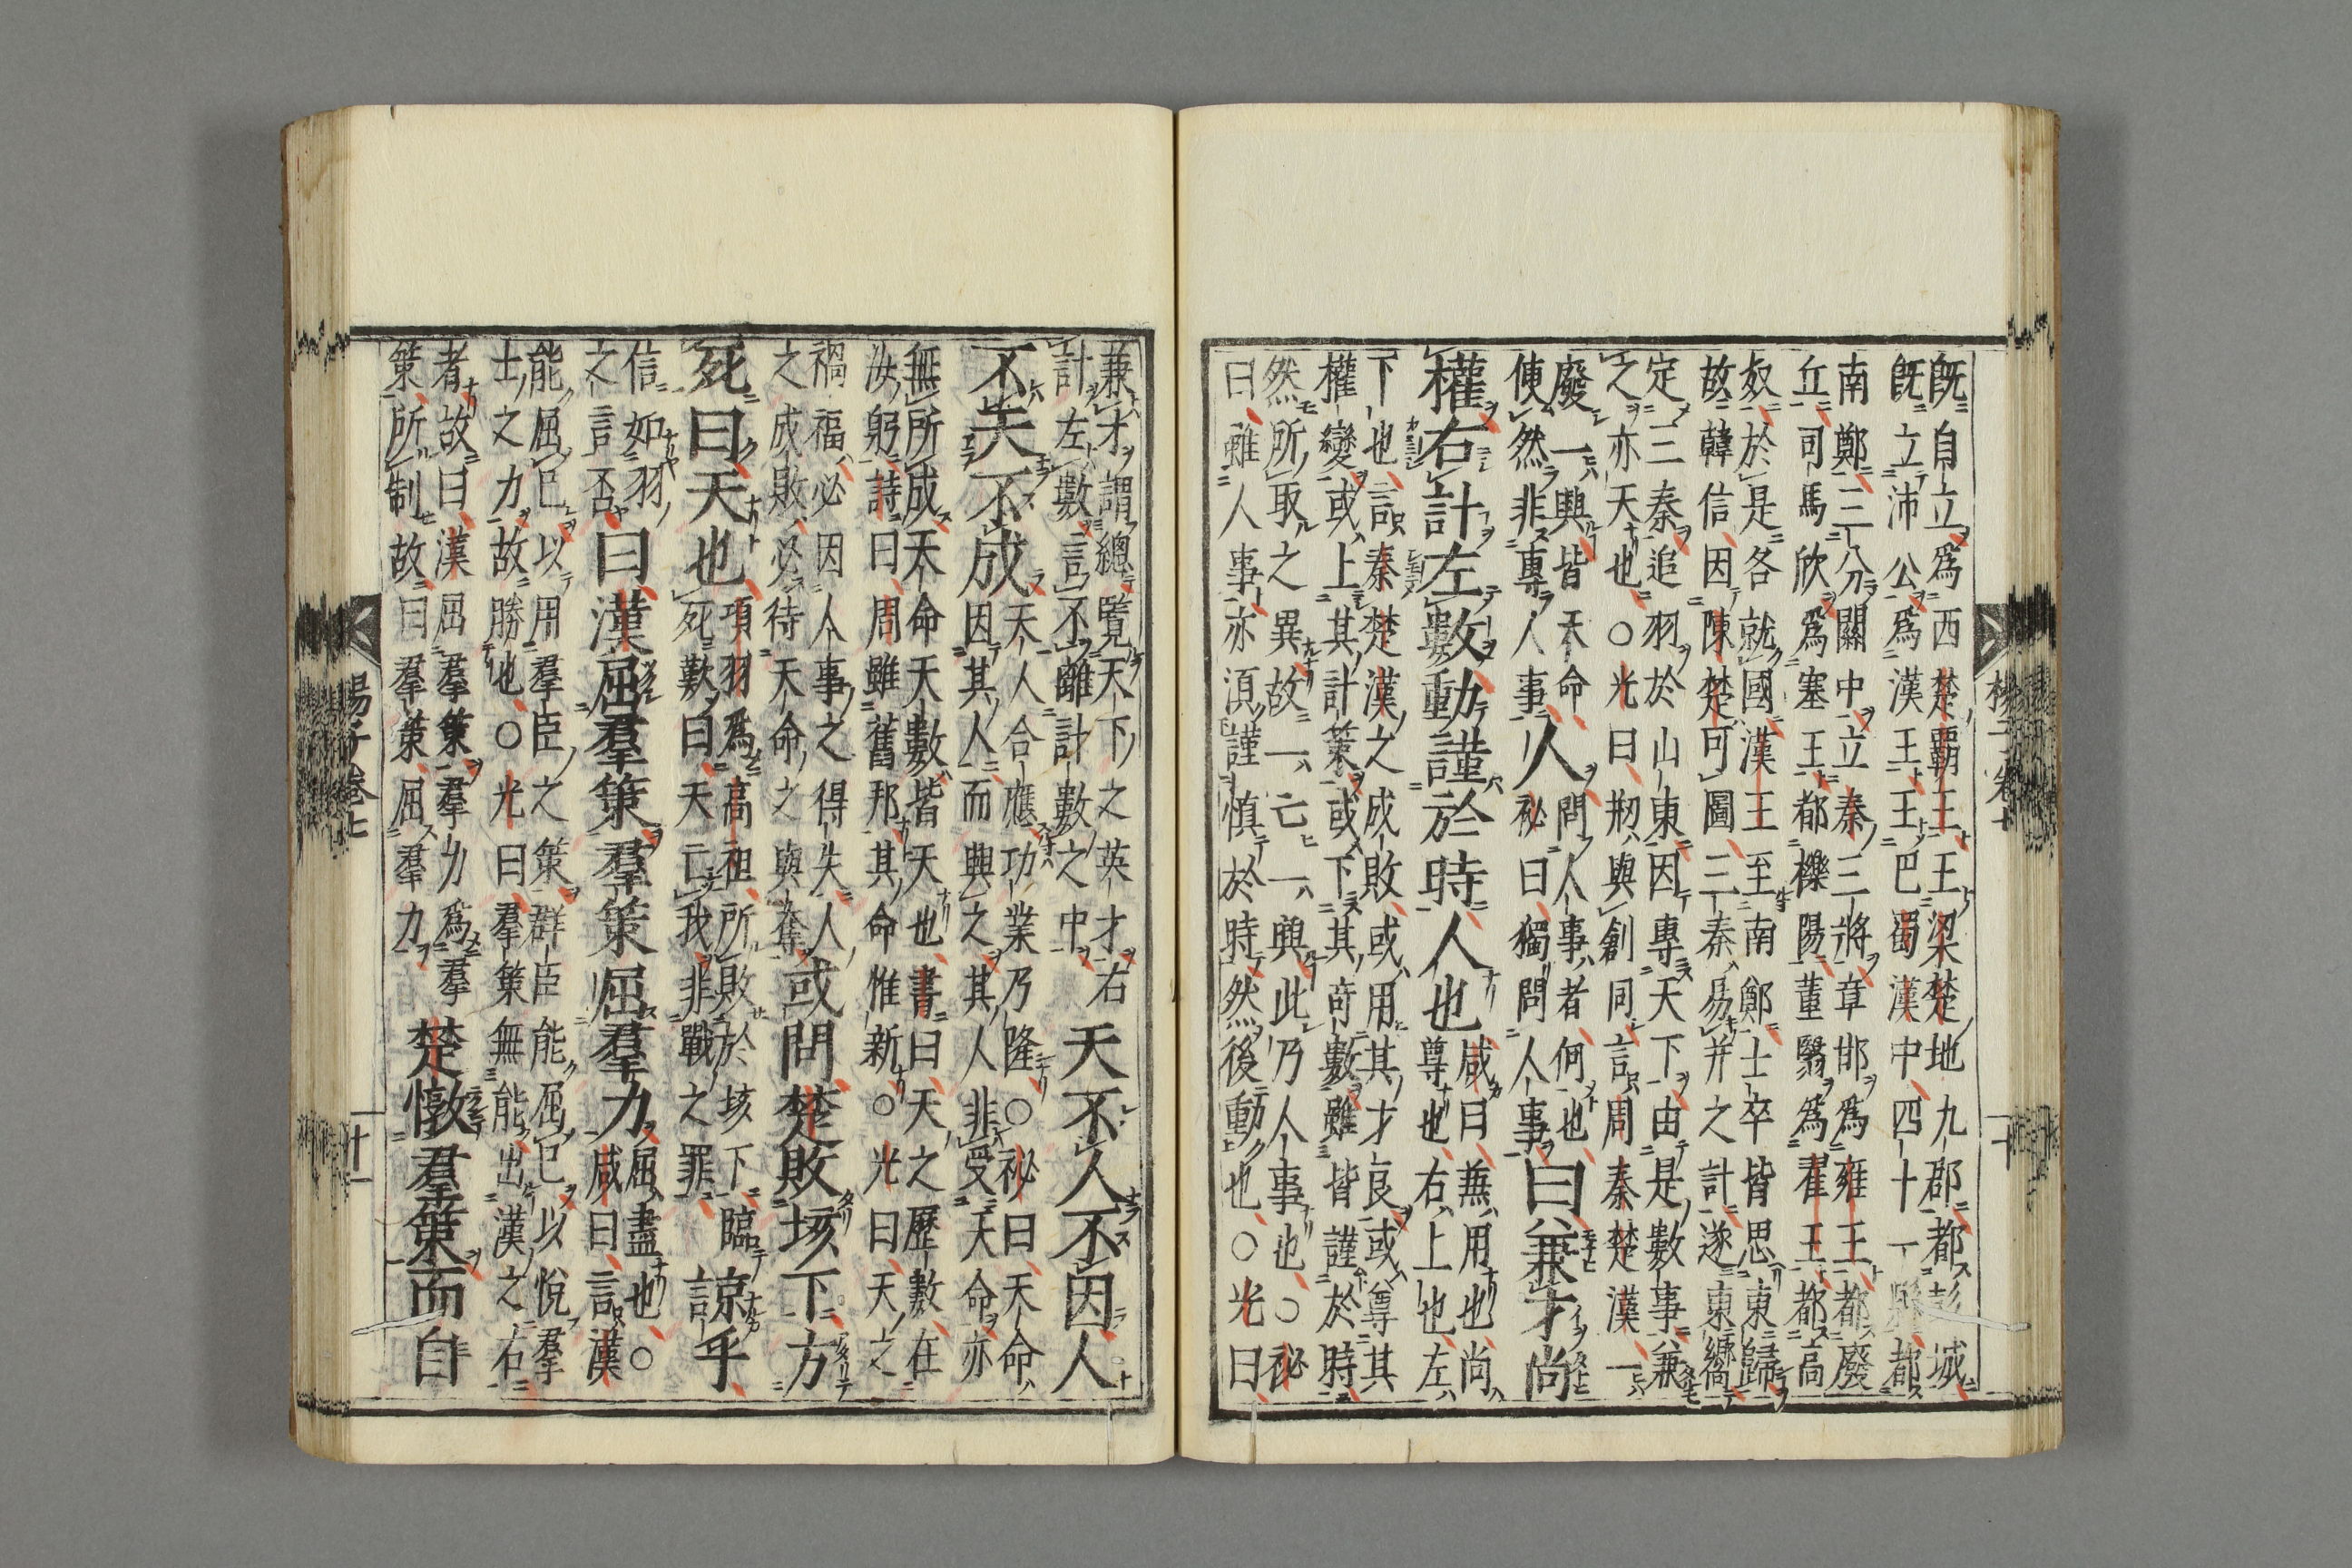 既自立爲西楚覇王王梁楚地九郡都彭城
既立沛公爲漢王王巴蜀漢中四十一縣都
南鄭三分關中立秦三將章邯爲雍王都廢
丘司馬欣爲塞王都櫟陽董翳爲翟王都高
奴於是各就國漢王至南鄭士卒皆思東歸
故韓信因陳楚可圖三秦易并之計遂東嚮
定三秦追羽於山東因專天下由是數事兼
之亦天也○光曰剏與創同言周秦楚漢一
廢一興皆天命
使然非專人事
人
問人事者何也
祕曰獨問人事
曰兼才尚
權右計左數動謹於時人也
咸曰兼用也尚
尊也右上也左
下也言秦楚漢之成敗或用其才良或尊其
權變或上其計策或下其奇數雖皆謹於時
然所取之異故一亡一興此乃人事也○祕
曰雖人事亦須謹慎於時然後動也○光曰
兼才謂總覽天下之英才右
計左數言不離計數之中
天不人不因人
不天不成
天人合應功業乃隆○祕曰天命
因其人而興之其人非受天命亦
無所成天命天數皆天也書曰天之歷數在
汝躬詩曰周雖舊邦其命惟新○光曰天之
禍福必因人事之得失人
之成敗必待天命之與奪
或問楚敗垓下方
死曰天也
項羽爲高祖所敗於垓下臨
死歎曰天亡我非戰之罪
諒乎
信如羽
之言否
曰漢屈羣策羣策屈羣力
屈盡也○
咸曰言漢
能屈已以用羣臣之策群臣能屈已以悅羣
士之力故勝也○光曰羣策無能出漢之右
者故曰漢屈羣策羣力爲羣
策所制故曰羣策屈羣力
楚憞羣策而自
楊子卷七
十一